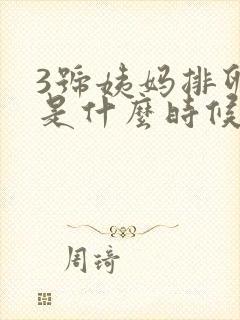 3號姨妈排卵
是什麼時候
周琦